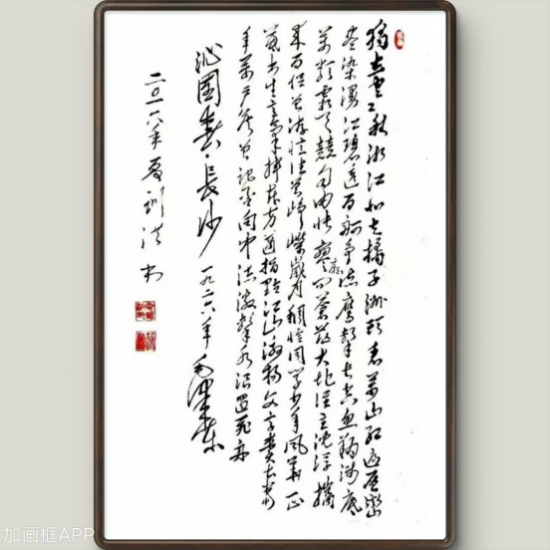 独立寒秋湘江北去橘子洲头看萬山红遍层
尽染漫江碧透百舸争流鹰擊长空鱼翔浅底
萬類霜天競自由怅寥廓问苍茫大地谁主沉浮携
来百侣曾游忆往昔峥嵘岁月稠恰同学少年风华正
茂书生意气挥斥方遒指點江山激扬文字粪土当
年萬户侯曾记否中流擊水浪遏飛舟
沁园春·長沙 一九二六年 毛泽东
二〇一年夏刘洪书
加画框APP